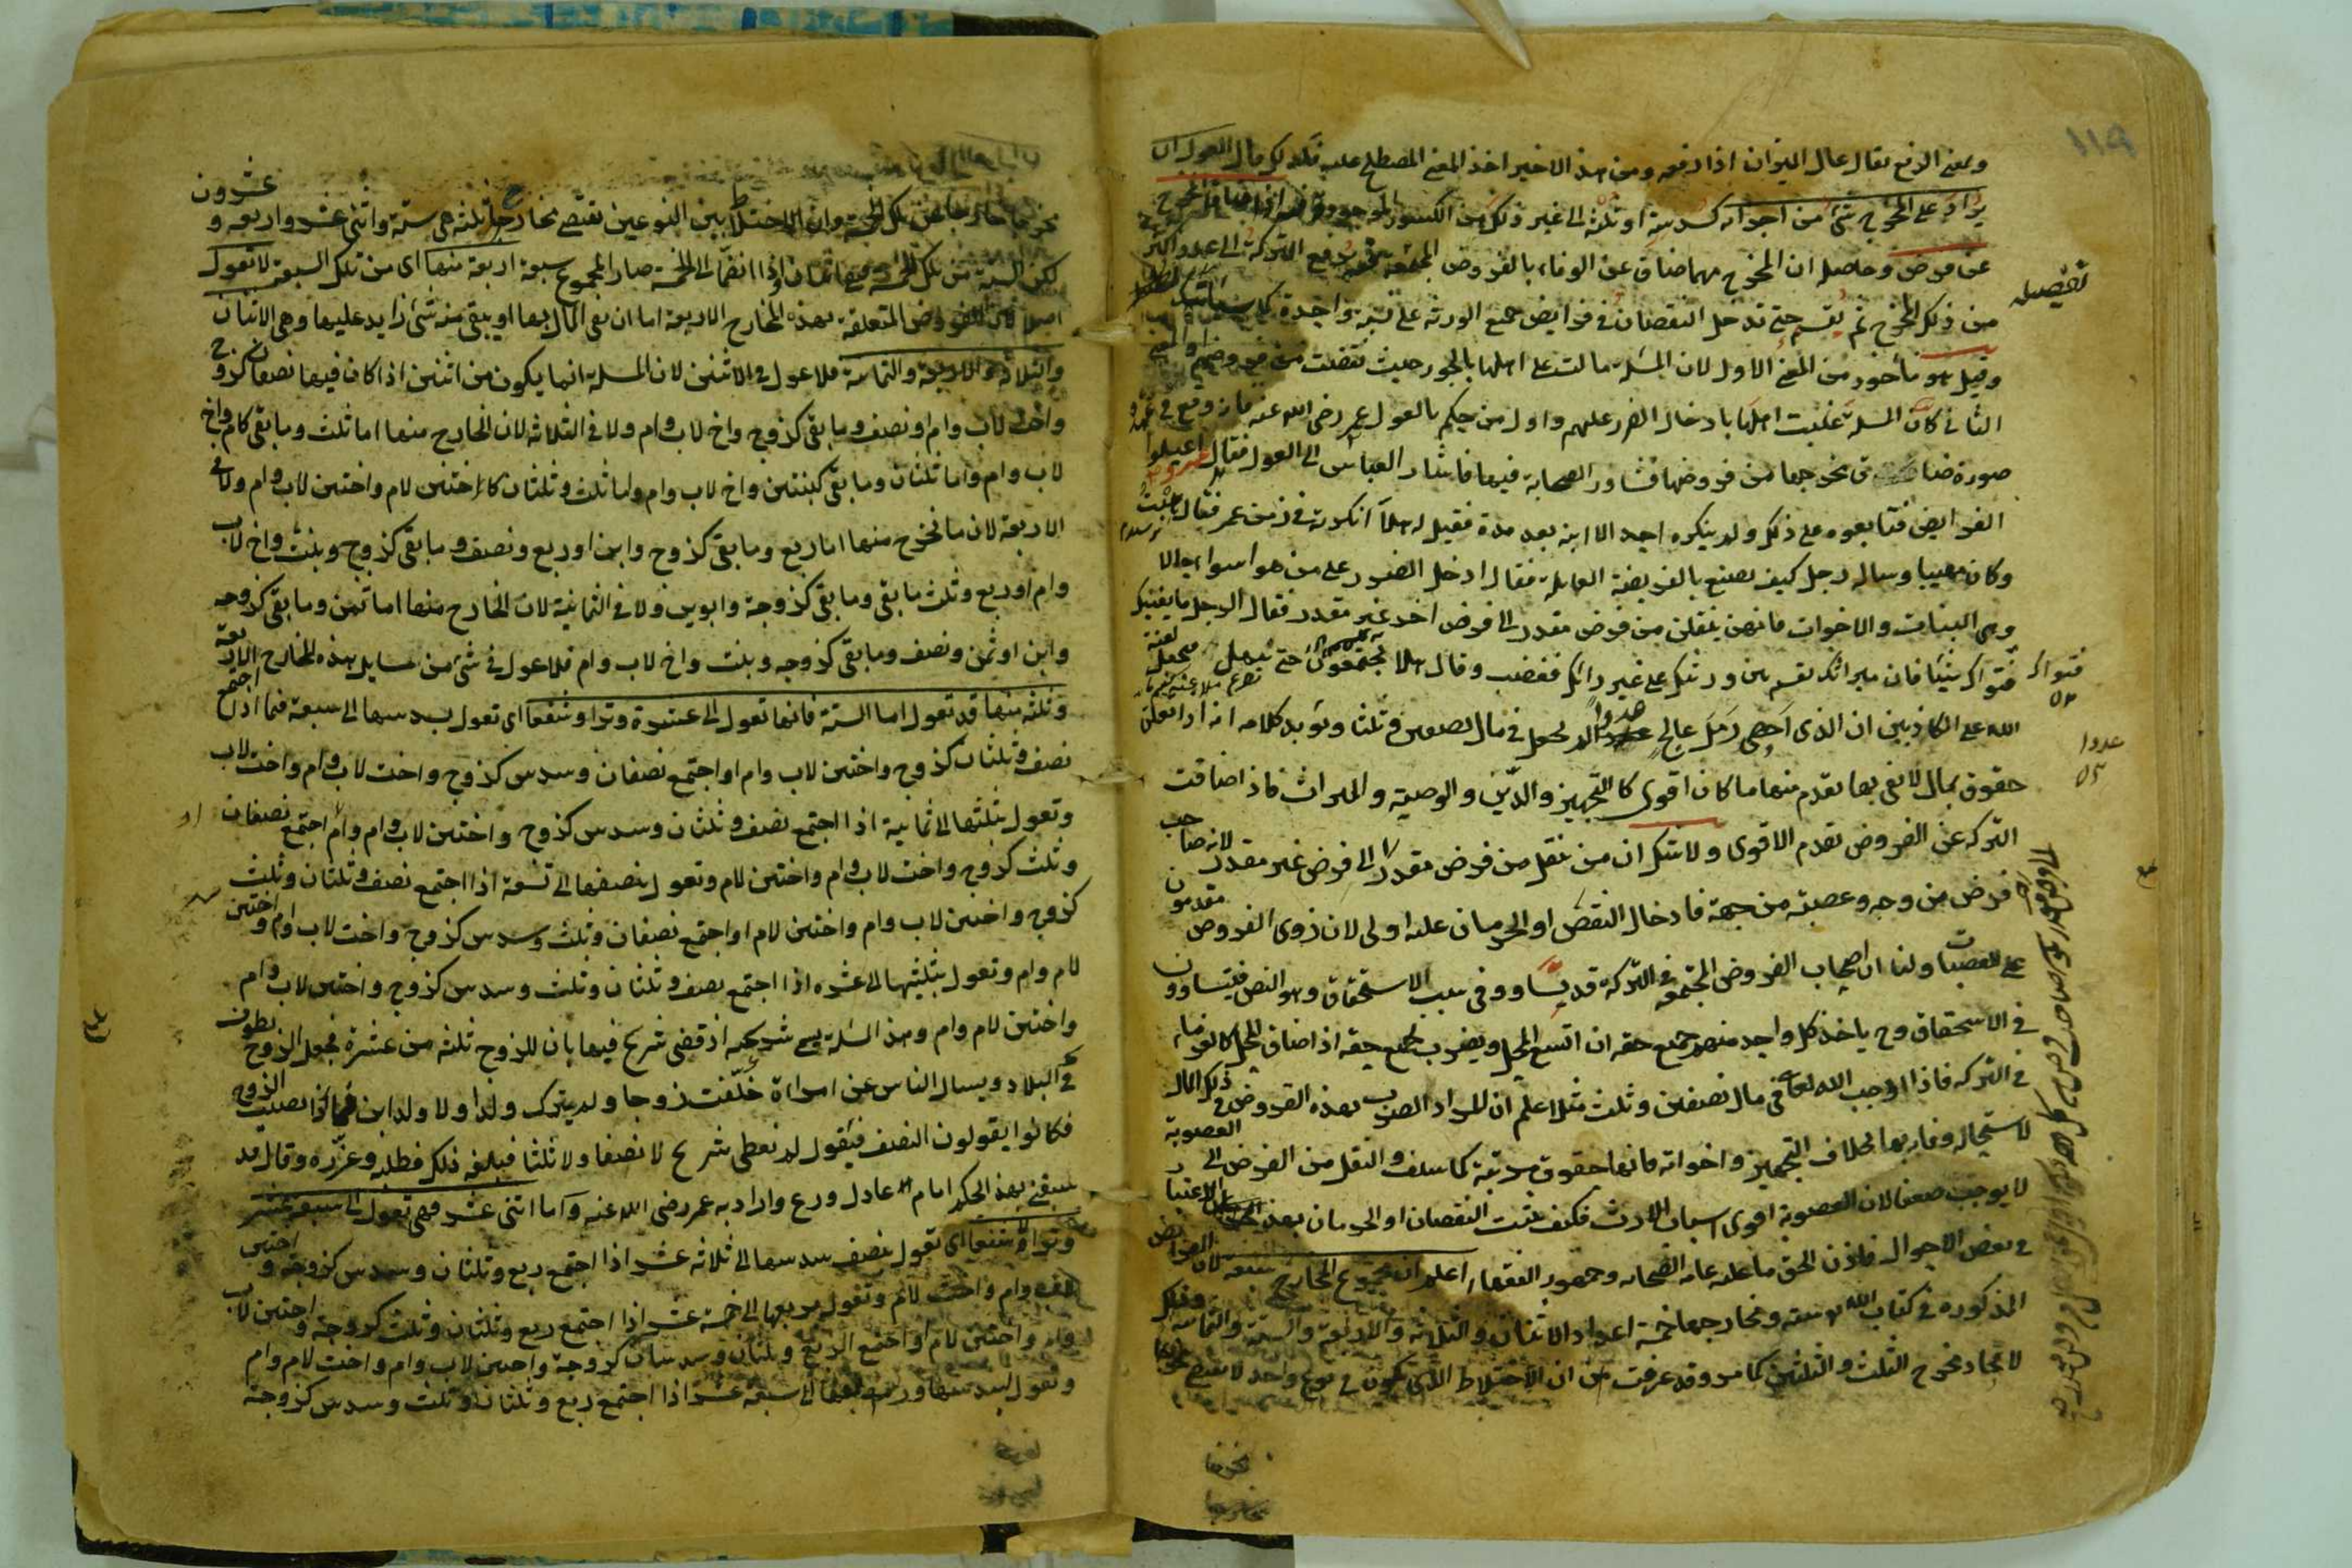 ١١٩
وبمعنى الرفع يقال عال الميزان اذا رفعه ومن هذا الاخير اخذ المعنى المصطلح عليه فلذلك قال العول ان
يزاد على المخرج شئ من اجزائه كسدسه او ثلثه الى غير ذلك من الكسور الموجودة فيه اذا ضاق المخرج
عن فرض وحاصله ان المخرج مهما ضاق عن الوفاء بالفروض المجتمعة فيه يرفع التركة الى عدد اكثر
تفصيله
من ذلك المخرج ثم يقسم حتى تدخل النقصان في فرايض جميع الورثة على نسبة واحدة
وقيل هو مأخوذ من المعنى الاول لان المسئلة مالت على اهلها بالجور حيث نقصت من فروضهم او المعنى
الثاني كان المسئلة غلبت اهلها بادخال الضرر عليهم واول من حكم بالعول عمر رضى الله عنه فانه وقع في عهده
صورة ضاق مخرجها من فروضها فشاور الصحابة فيها فاشار العباس الى العول فقال اعيلوا
الفرايض فتابعوه على ذلك ولم ينكره احد الا ابنه بعد مدة فقيل له هلا انكرته في زمن عمر فقال هبته
وكان مهيبا وساله رجل كيف تصنع بالفريضة العايلة فقال ادخل الضرر على من هو اسواء حالا
وهي البنات والاخوات فانهن ينقلن من فرض مقدر الى فرض اخر غير مقدر فقال الرجل ما يغنيك
فتواك شيئا فان ميراثك تقسم بين ورثتك على غير رائك فغضب وقال هلا تجتمعون حتى نبتهل فنجعل لعنة
فتواك
الله على الكاذبين ان الذي احصى رمل عالج عددا لم يجعل في مال نصفين وثلثا ويؤيد كلامه انه اذا تعلق
عددا
حقوق بمال لا يفى بها يقدم منها ما كان اقوى كالتجهيز والدين والوصية والميراث فاذا ضاقت
التركة عن الفروض تقدم الاقوى ولا شك ان من نقل من فرض مقدر الى فرض غير مقدر لانه صاحب
فرض من وجه وعصبة من جهة فادخال النقص او الحرمان عليه اولى لان ذوى الفروض مقدمون
على العصبات ولنا ان اصحاب الفروض المجتمعة في التركة قد تساووا في سبب الاستحقاق وهو النص فيتساوون
في الاستحقاق وح ياخذ كل واحد منهم جميع حقه ان اتسع المحل ويضرب بجميع حقه اذا ضاق المحل كالغرماء
في التركة فاذا اوجب الله تعالى في مال نصفين وثلث مثلا علم ان المراد الضرب بهذه الفروض في ذلك المال
لاستحالة وفائه بها بخلاف التجهيز واخواته فانها حقوق مرتبة كما سلف والنقل من الفرض الى العصوبة
لا يوجب ضعفا لان العصوبة اقوى اسباب الارث فكيف يثبت النقصان او الحرمان بهذا الاعتبار
في بعض الاحوال فاذن الحق ما عليه عامة الصحابة وجمهور الفقهاء اعلم ان مجموع المخارج سبعة لان الفرايض
المذكورة في كتاب الله ستة ومخارجها خمسة اعداد الاثنان والثلاثة والاربعة والستة والثمانية وذلك
لاتحاد مخرج الثلث والثلثين كما مر وقد عرفت من ان الاختلاط الذى يكون في نوع واحد لا يقتضي
مخرجا خارجا عن تلك الخمسة وان الاختلاط بين النوعين تقتضى مخارج ثلثة هى ستة واثنى عشر واربعة وعشرون
لكن الستة من تلك الخمسة فبقى اثنان واذا انضما الى الخمسة صار المجموع سبعة اربعة منها اى من تلك السبعة لا تعول
اصلا لان الفروض المتعلقة بهذه المخارج الاربعة اما ان يفى المال بها او يبقى منه شئ زايد عليها وهى الاثنان
والثلاثة والاربعة والثمانية فلا عول في الاثنين لان المسئلة انما يكون من اثنين اذا كان فيها نصفان كزوج
واخت لاب وام او نصف وما بقى كزوج واخ لاب وام ولا في الثلاثة لان الخارج منها اما ثلث وما بقى كام واخ
لاب وام واما ثلثان وما بقى كبنتين واخ لاب وام واما ثلث وثلثان كاختين لام واختين لاب وام ولا في
الاربعة لان ما تخرج منها اما ربع وما بقى كزوج وابن او ربع ونصف وما بقى كزوج وبنت واخ لاب
وام او ربع وثلث ما بقى وما بقى كزوجة وابوين ولا في الثمانية لان الخارج منها اما ثمن وما بقى كزوجة
وابن او ثمن ونصف وما بقى كزوجه وبنت واخ لاب وام فلا عول في شئ من مسايل هذه المخارج الاربعة
وثلثة منها قد تعول اما الستة فانها تعول الى عشرة وترا وشفعا اى تعول بسدسها الى سبعة فيما اذا اجتمع
نصف وثلثان كزوج واختين لاب وام او اجتمع نصفان وسدس كزوج واخت لاب وام واخت لاب
وتعول بثلثها الى ثمانية اذا اجتمع نصف وثلثان وسدس كزوج واختين لاب وام وام او اجتمع نصفان
وثلث كزوج واخت لاب وام واختين لام وتعول بنصفها الى تسعة اذا اجتمع نصف وثلثان وثلث
كزوج واختين لاب وام واختين لام او اجتمع نصفان وثلث وسدس كزوج واخت لاب وام واختين
لام وام وتعول بثلثيها الى عشرة اذا اجتمع نصف وثلثان وثلث وسدس كزوج واختين لاب وام
واختين لام وام وهذه المسئلة يسمى شريحية اذ قضى شريح فيها بان للزوج ثلثة من عشرة فجعل الزوج يطوف
في البلاد ويسال الناس عن امراة خلفت زوجا ولم يترك ولدا ولا ولد ابن فماذا نصيب الزوج
فكانوا يقولون النصف فيقول لم تعطى شريح لا نصفا ولا ثلثا فبلغه ذلك فطلبه وعزره وقال قد
سبقنى بهذا الحكم امام عادل ورع واراد به عمر رضى الله عنه واما اثنى عشر فهى تعول الى سبعة عشر
وترا لا شفعا اى تعول بنصف سدسها الى ثلاثة عشر اذا اجتمع ربع وثلثان وسدس كزوجة واختين
لاب وام واخت لام وتعول بربعها الى خمسة عشر اذا اجتمع ربع وثلثان وثلث كزوجة واختين لاب
وام واختين لام او اجتمع الربع وثلثان وسدسان كزوجة واختين لاب وام واخت لام وام
وتعول بسدسها وربعها الى سبعة عشر اذا اجتمع ربع وثلثان وثلث وسدس كزوجة